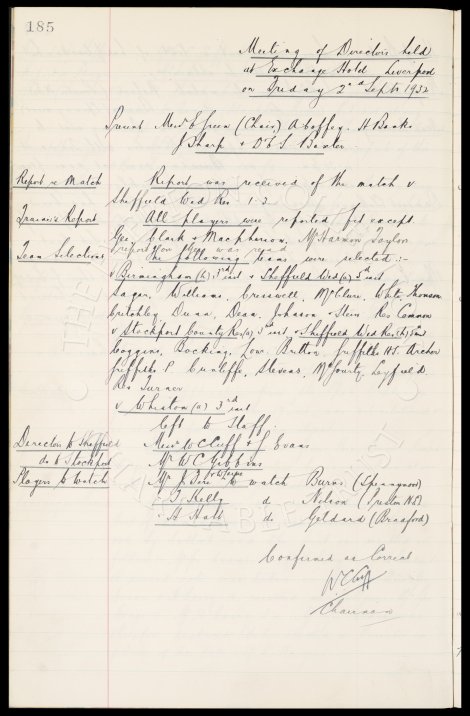 185
Meeting of Directors held
at Exchange Hotel Liverpool
on Friday 2nd Sept 1932
Present Messrs E Green (Chair) A Coffey. H Banks
J Sharp & Dr C S Baxter.
Report re Match Report was received of the match v
Sheffield Wed Res 1-3
Trainer's Report All players were reported fit except
Geo, Clark & Macpherson, McHarmon Taylor
report
was read
Team Selections The following teams were selected :-
v Birmingham (h) 3rd inst & Sheffield Wed (a) 5th inst
Sagar, Williams, Cresswell, McClure, White, Thomson
Critchley Dunn, Dean, Johnson & Stein Res Common
v Stockport County Res (a) 3rd inst & Sheffield Wed Res (h)
Coggins, Bocking, Low, Britton, Griffiths HS. Archer
Griffiths P Cunliffe, Stevens, McGourty, Leyfield
Turner
v Wheaton (a) 3rd inst
left to Staff.
Directors to Sheffield Messrs W C Cuff & J Evans
do to Stockport Mr W C Gibbins
Players to Watch Mr to watch Burns (Spennymoor)
" J Kelly do Nelson (Preston N.E)
" H Hall do Geldard (Bradford)
Confirmed as Correct
W C Cuff
Chairman